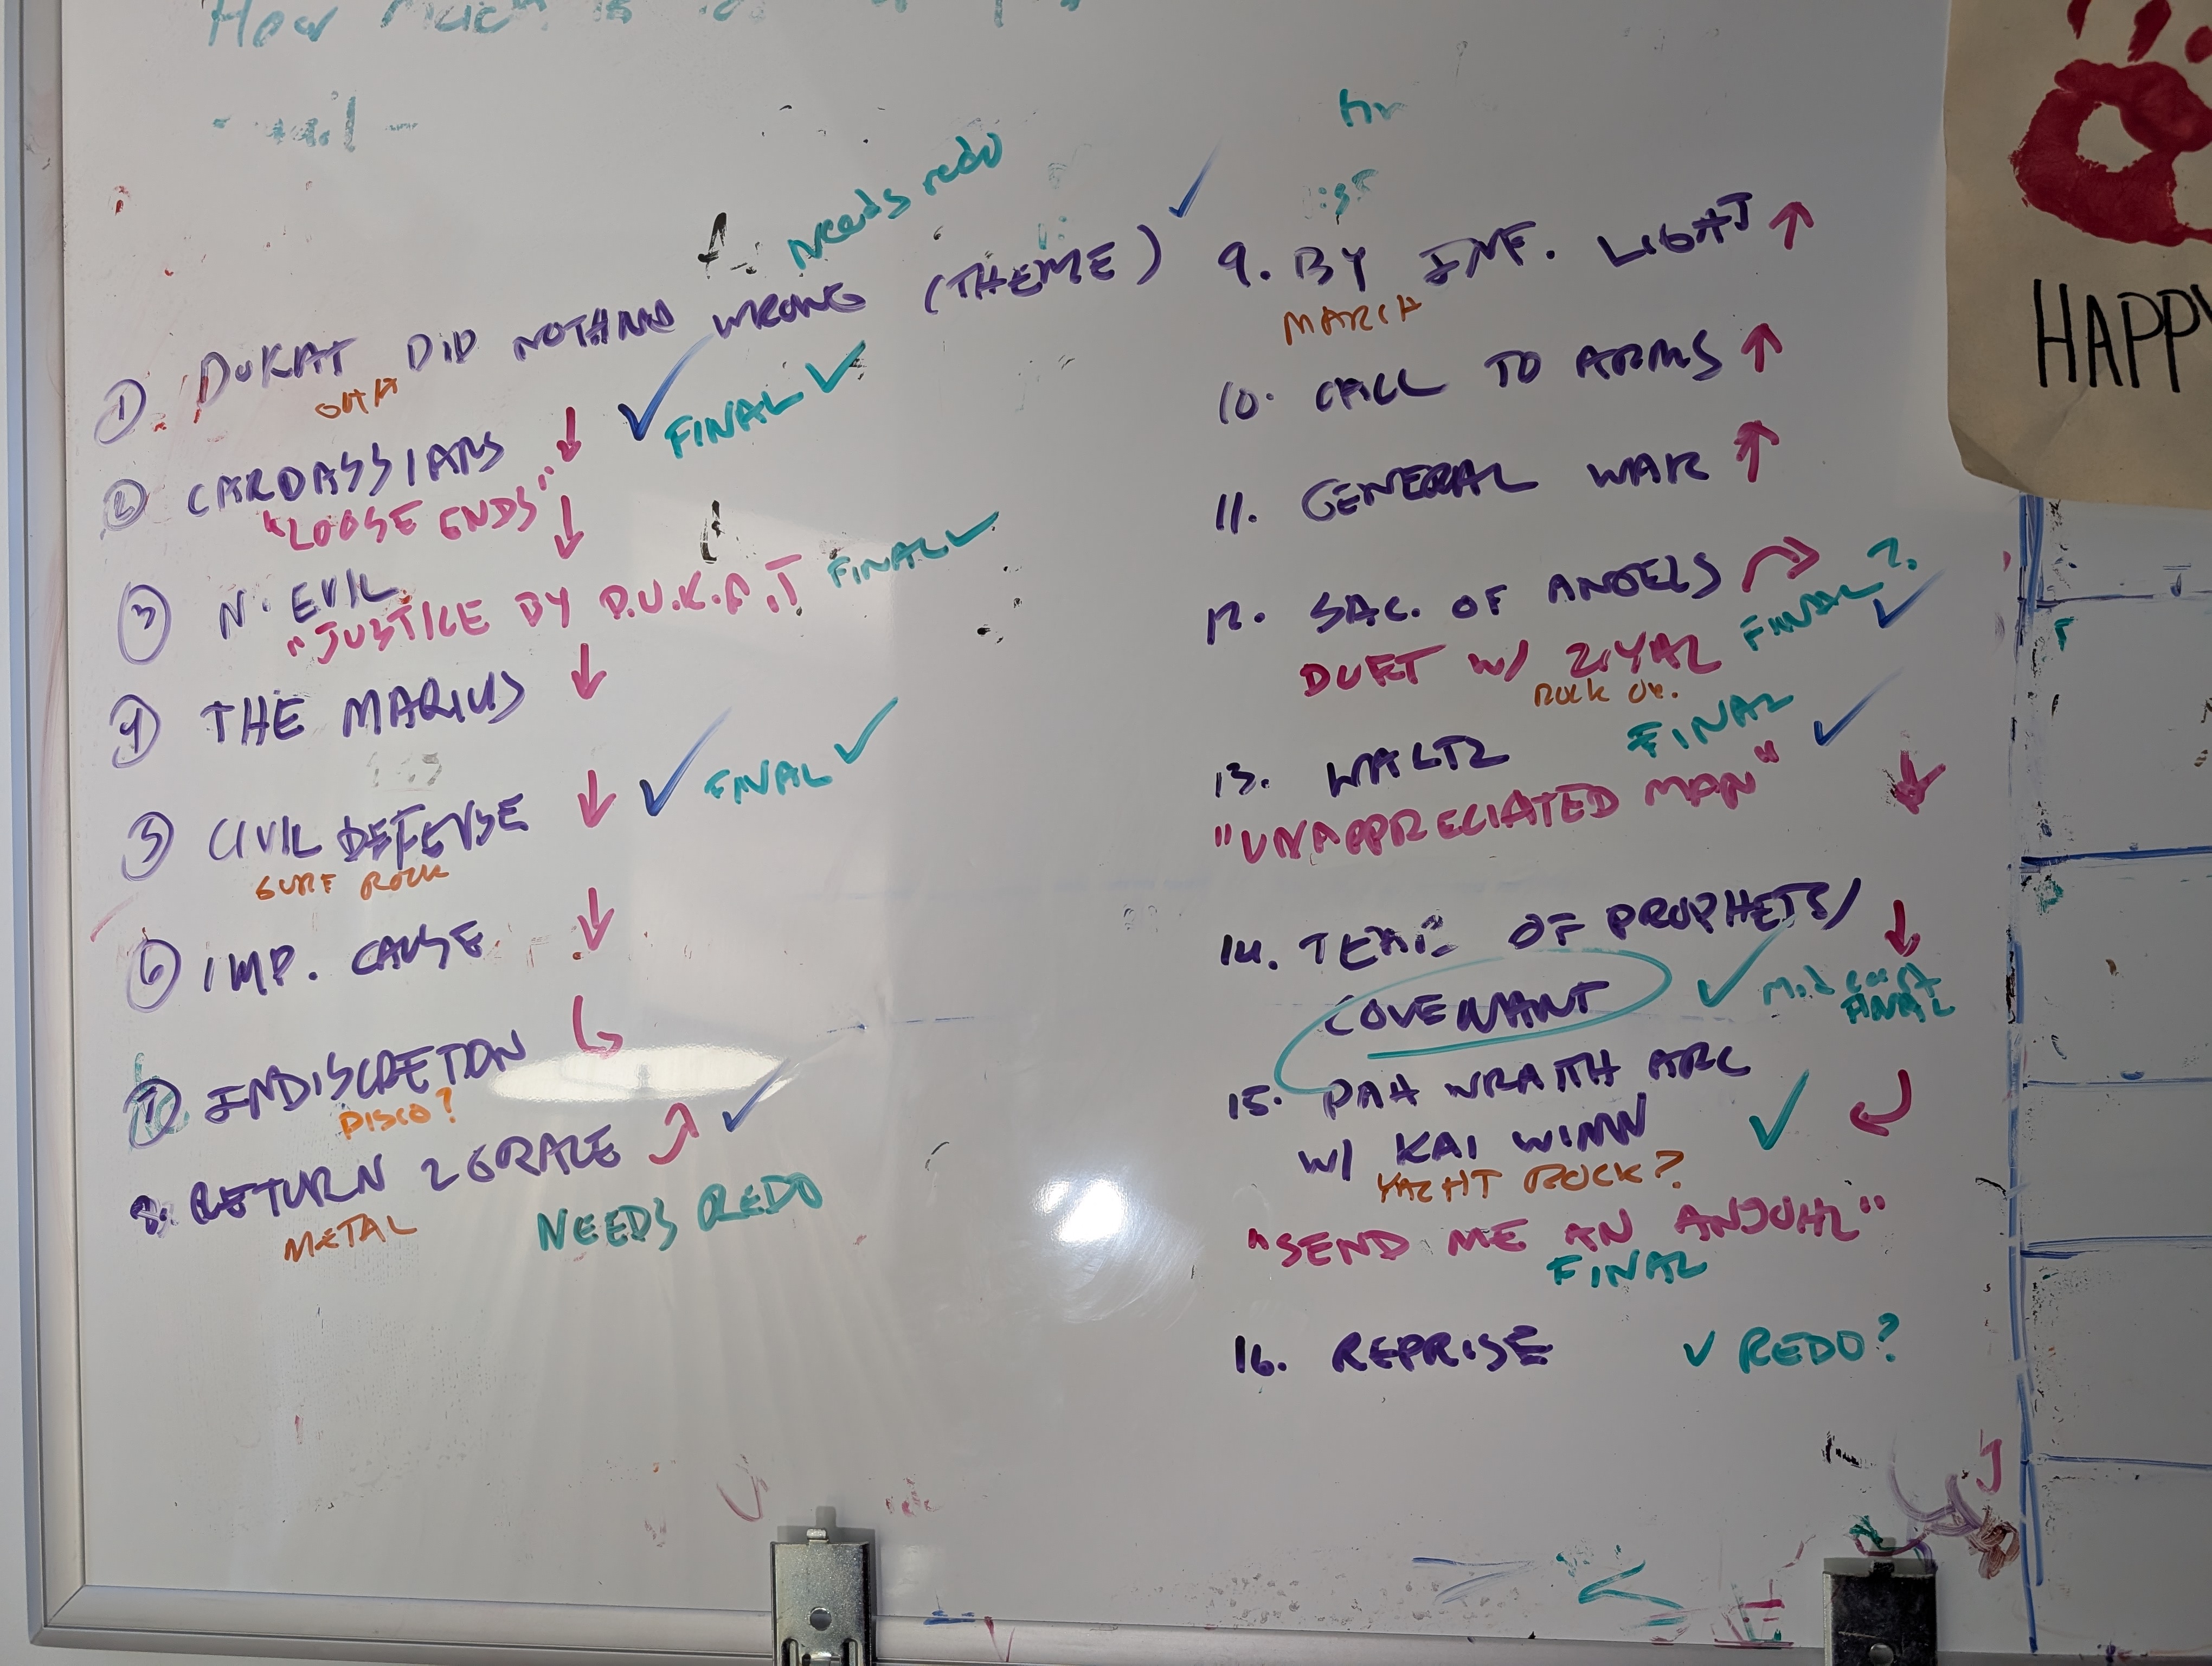 needs redo
① DUKAT DID NOTHING WRONG (THEME) ✓
② CARDASSIANS ↓ ✓ FINAL ✓
"LOOSE ENDS" ↓
③ N. EVIL
"JUSTICE BY D.U.K.A.T FINAL ✓
④ THE MARIUS ↓
⑤ CIVIL DEFENSE ↓ ✓ FINAL ✓
SURF ROCK
⑥ IMP. CAUSE ↓
⑦ INDISCRETON
DISCO?
8. RETURN 2 GRACE ✓
METAL NEEDS REDO
9. BY INF. LIGHT ↑
MARCH
10. CALL TO ARMS ↑
11. GENERAL WAR ↑
12. SAC. OF ANGELS
DUET W/ ZIYAL FINAL? ✓
ROCK
13. WALTZ FINAL ✓
"UNAPPRECIATED MAN" ↓
14. OF PROPHETS/ ↓
COVENANT ✓ FINAL
15. PAH WRAITH ARC
W/ KAI WINN ✓
YACHT ROCK?
"SEND ME AN ANJOHL"
FINAL
16. REPRISE ✓ REDO?
HAPPY